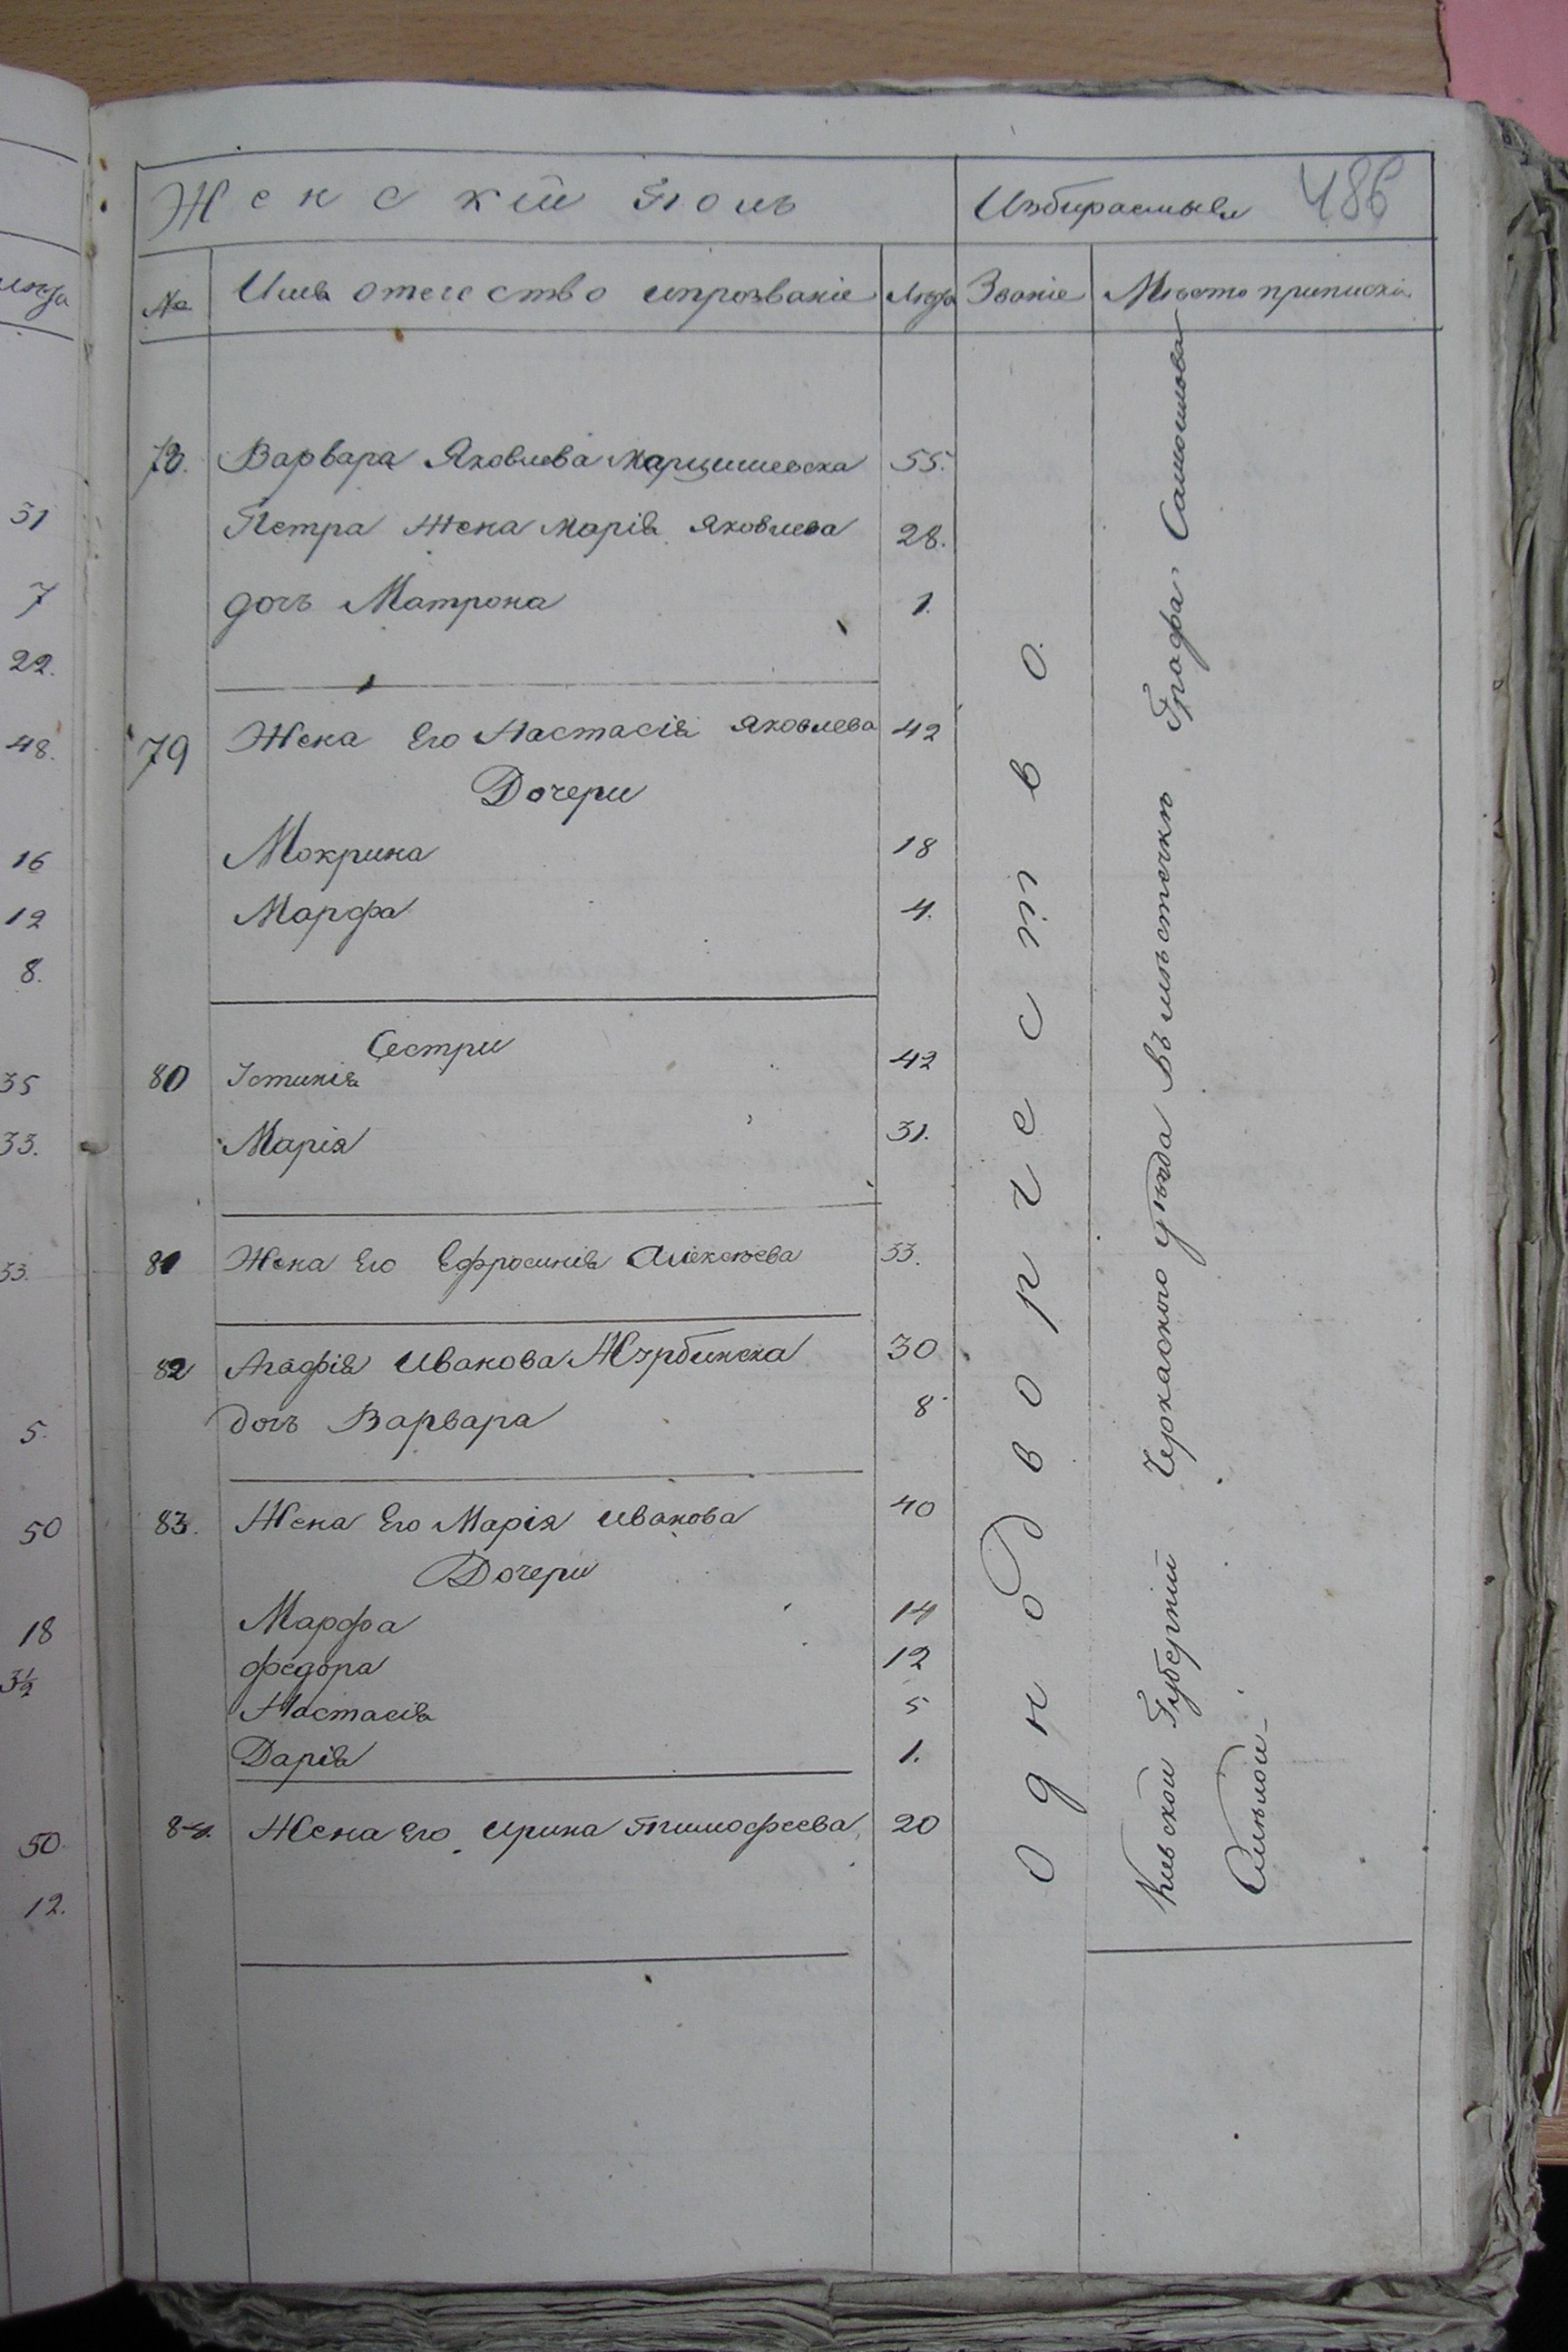 Женскій Полъ
Избираемыя
486
№
Имя отечество ипрозваніе
Лѣта
Званіе
Мѣсто приписки
78. Варвара Яковлева Марцишевска 55.
Петра Жена Марія Яковлева 28.
дочь Матрона 1.
79 Жена Его Настасія Яковлева 42
Дочери
Мокрина 18
Марфа 4.
Сестри
80 Істинія 42
Марія 31.
81 Жена Его Ефросинія Алексѣева 33.
82 Агафія Иванова Журбинска 30
дочь Варвара 8
83. Жена Его Марія Иванова 40
Дочери
Марфа 14
Федора 12
Настасія 5
Дарія 1.
84. Жена Его Ирина Тимофеева 20
Однодворчество.
Кіевской Губерніи Черкаского уѣзда Въ мѣстечкѣ Графа Самойлова
Смѣлой
лѣта
31
7
22.
48.
16
12
8.
35
33.
33.
5.
50
18
3½
50.
12.